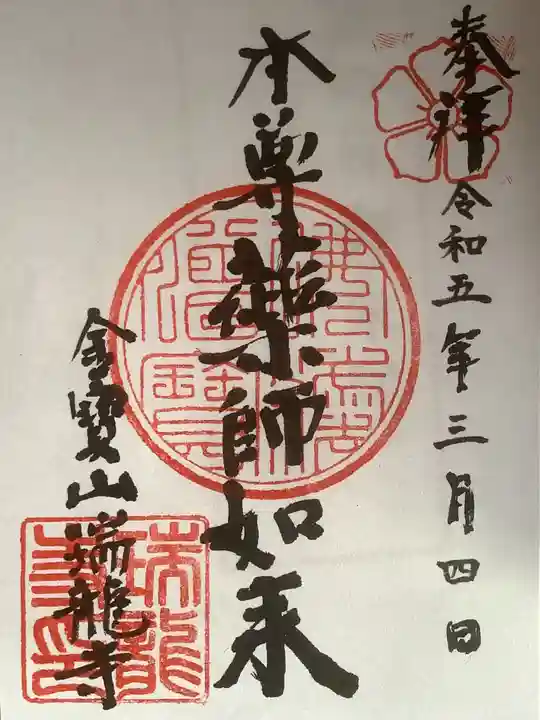 奉拝
令和五年三月四日
本尊薬師如来
金寶山瑞龍寺
瑞龍
寺印